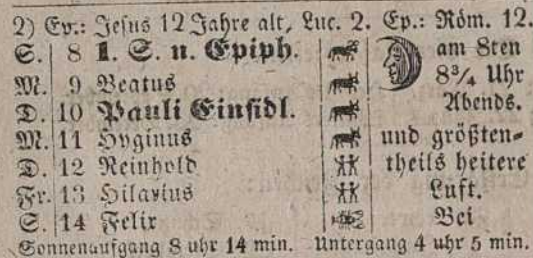 2) Ev.: Jesus 12 Jahre alt, Luc. 2. Ep.: Röm. 12.
S. 8 1. S. n. Epiph. am 8ten
M. 9 Beatus 8¾ Uhr
D. 10 Pauli Einsidl. Abends.
M. 11 Hyginus und größten-
D. 12 Reinhold theils heitere
Fr. 13 Hilarius Luft.
S. 14 Felix Bei
Sonnenaufgang 8 uhr 14 min. Untergang 4 uhr 5 min.